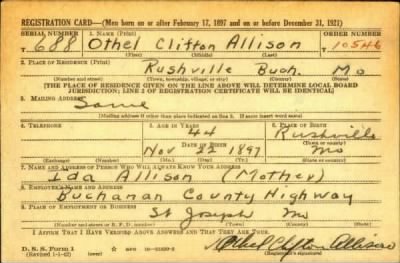 REGISTRATION CARD—(Men born on or after February 17, 1897 and on or before December 31, 1921)
SERIAL NUMBER 1. NAME (Print) ORDER NUMBER
T 688 Othel Clifton Allison 10546
(First) (Middle) (Last)
2. PLACE OF RESIDENCE (Print)
Rushville Buch. Mo
(Number and street) (Town, township, village, or city) (County) (State)
[THE PLACE OF RESIDENCE GIVEN ON THE LINE ABOVE WILL DETERMINE LOCAL BOARD
JURISDICTION; LINE 2 OF REGISTRATION CERTIFICATE WILL BE IDENTICAL]
3. MAILING ADDRESS
Same
[Mailing address if other than place indicated on line 2. If same insert word same]
4. TELEPHONE 5. AGE IN YEARS 6. PLACE OF BIRTH
44 Rushville
DATE OF BIRTH (Town or county)
Nov 22 1897 Mo
(Exchange) (Number) (Mo.) (Day) (Yr.) (State or country)
7. NAME AND ADDRESS OF PERSON WHO WILL ALWAYS KNOW YOUR ADDRESS
Ida Allison (Mother)
8. EMPLOYER'S NAME AND ADDRESS
Buchanan County Highway
9. PLACE OF EMPLOYMENT OR BUSINESS
St Joseph Mo
(Number and street or R. F. D. number) (Town) (County) (State)
I AFFIRM THAT I HAVE VERIFIED ABOVE ANSWERS AND THAT THEY ARE TRUE.
D. S. S. Form 1
(Revised 1-1-42) (over)
Othel Clifton Allison